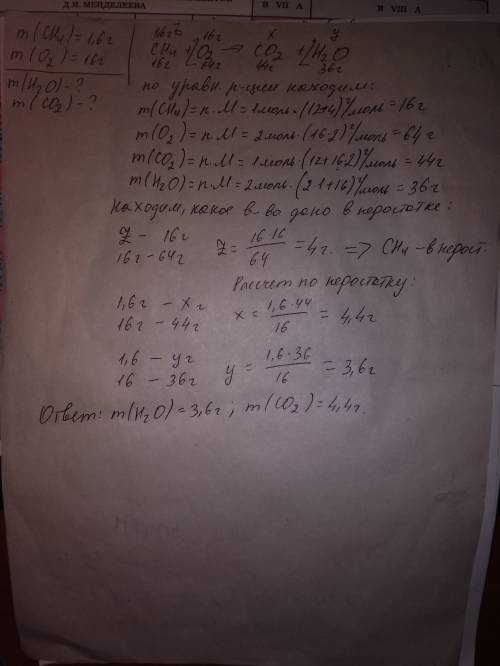 Д.И. МЕНДЕЛЕЕВА
B VII A
B VIII A
m(CH₄)=1,6г
m(O₂)=16г
m(H₂O)-?
m(CO₂)-?
16г x y
CH₄+2O₂ → CO₂ +2H₂O
16г 64г 44г 36г
по уравн. р-ции находим:
m(CH₄)=n·M=1моль·(12+4)г/моль=16г
m(O₂)=n·M=2моль·(16·2)г/моль=64г
m(CO₂)=n·M=1моль·(12+16·2)г/моль=44г
m(H₂O)=n·M=2моль·(2·1+16)г/моль=36г
Находим, какое в-во дано в недостатке:
Z - 16г
16г-64г
Z= 16·16/64 =4г. => CH₄-в недост.
Расчет по недостатку:
1,6г - xг
16г - 44г
x= 1,6·44/16 = 4,4г
1,6 - yг
16 - 36г
y= 1,6·36/16 = 3,6г
Ответ: m(H₂O)=3,6г; m(CO₂)=4,4г.